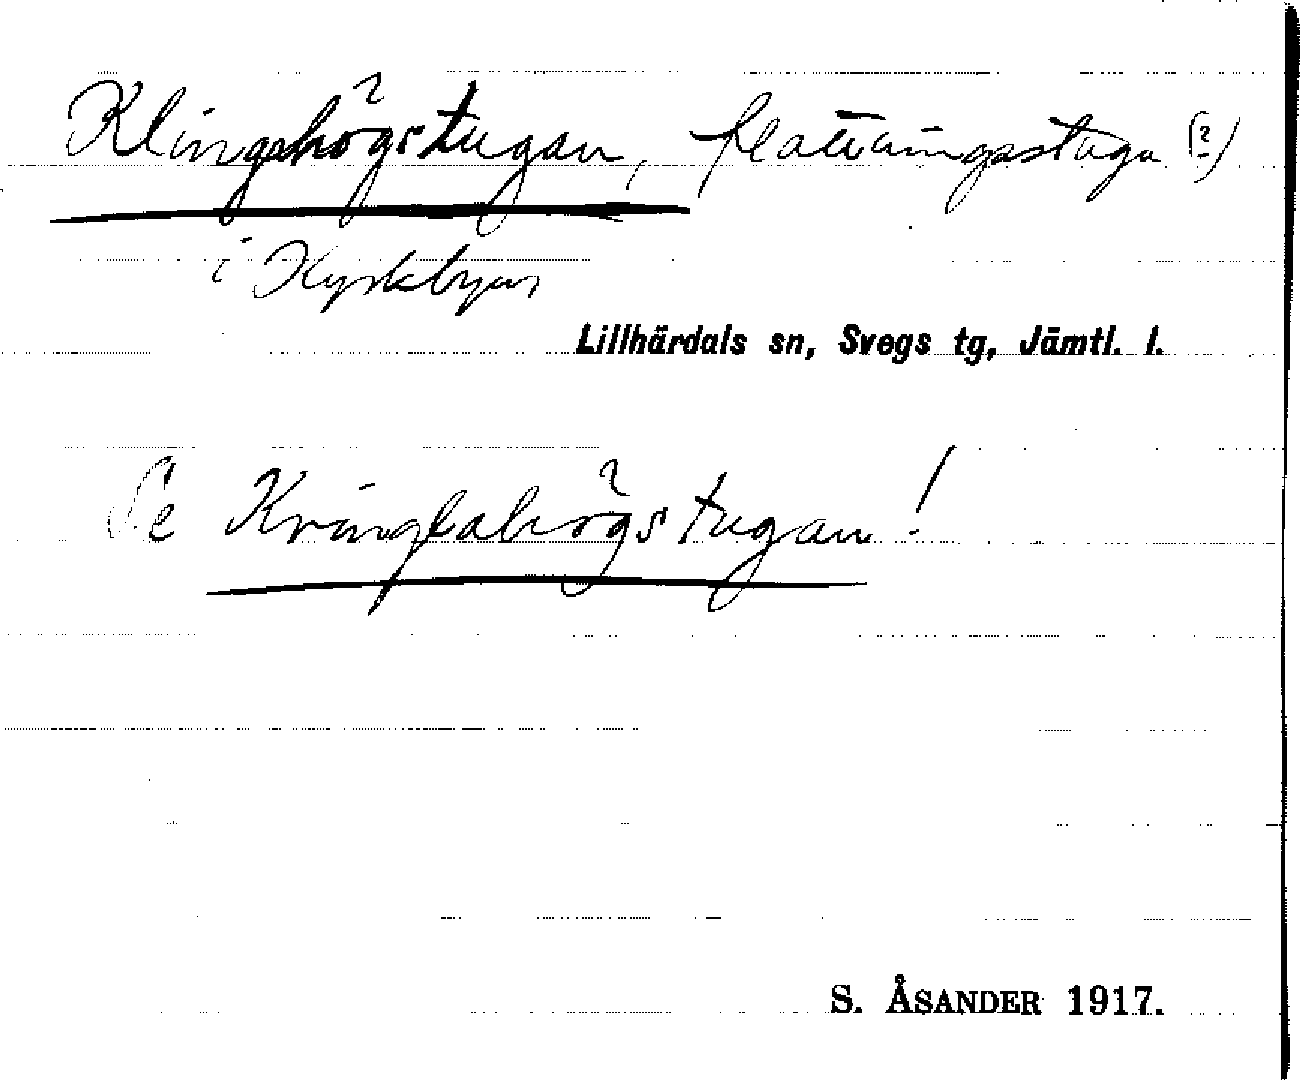 Klingshögstugan, flottningsstuga (?)
i Kyrkbyn
Lillhärdals sn, Svegs tg, Jämtl. l.
Se Kringlahögstugan!
S. ÅSANDER 1917.